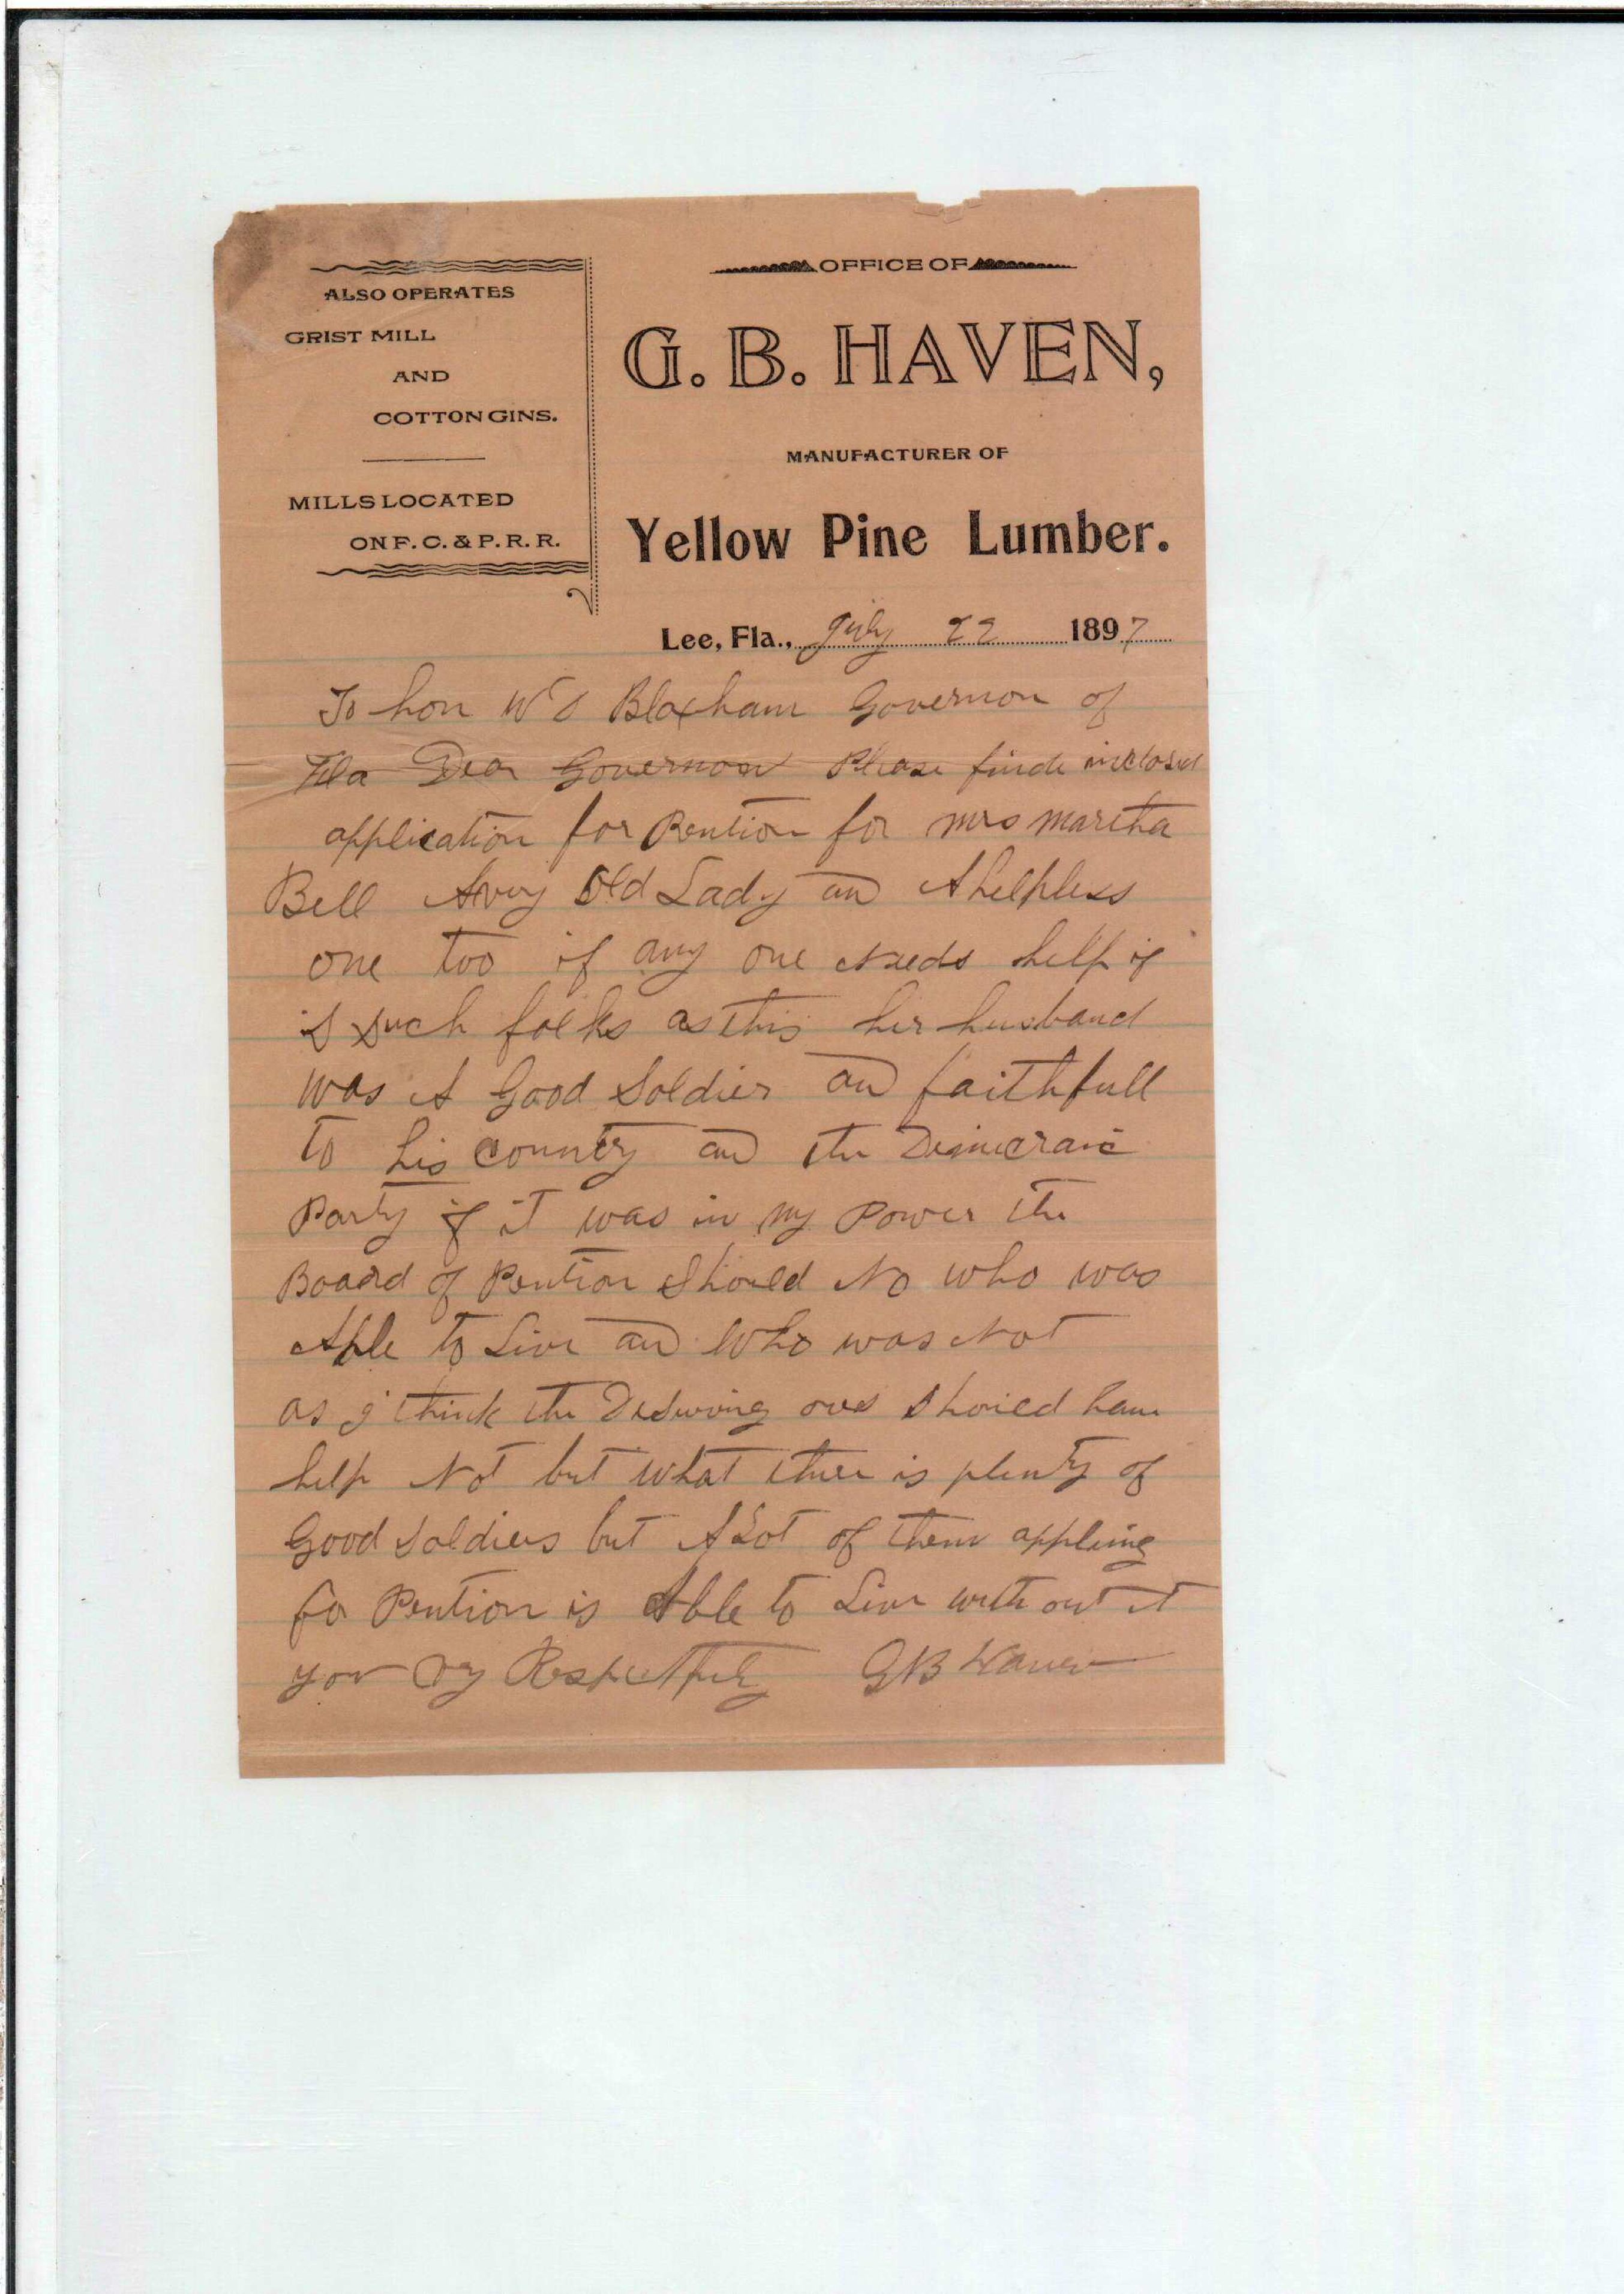 ALSO OPERATES
GRIST MILL
AND
COTTON GINS.
MILLS LOCATED
ON F. C. & P. R. R.
OFFICE OF
G. B. HAVEN,
MANUFACTURER OF
Yellow Pine Lumber.
Lee, Fla., July 22 1897
To hon W D Bloxham Governon of
Fla Dear Governor Please finde inclosed
application for Pention for mrs martha
Bell A very Old Lady an A helpless
one too if any one Needs help if
is such folks as this her husband
was A Good Soldier an faithfull
to his country an the Democratic
Party if it was in my Power the
Board of Pention Should No who was
Able to Live an Who was Not
as I think the Deserving ones Should have
help Not but what there is plenty of
Good Soldiers but A Lot of them appling
for Pention is Able to Live with out it
your very Respectfuly G B Haven